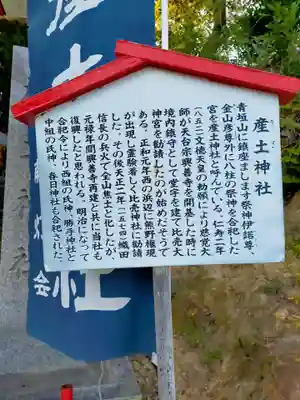 産土神社
青垣山に鎮座まします祭神伊諾尊、
金山彦尊外に八柱の祭神を合祀した
宮を産土神社と呼んでいる。仁寿二年
(八五二文徳天皇の勅願により慈覚大
師が天台宗興善寺を開基した時に
境内鎮守として堂宇を建て比売大
神宮を勧請したのが始めたそうで
ある。正和元年西の浜辺に熊野権現
が出現し霊験著しく比売神社に勧請
した。その後天正二年(一五七四)織田
信長の兵火で全山焦土と化したが、
元禄年間興善寺再建と共に当社も
復興したと思われる。明治になって
合祀令により西組の氏神、勝手神社と
中組の氏神、春日神社も合祀された。
産土
社
会